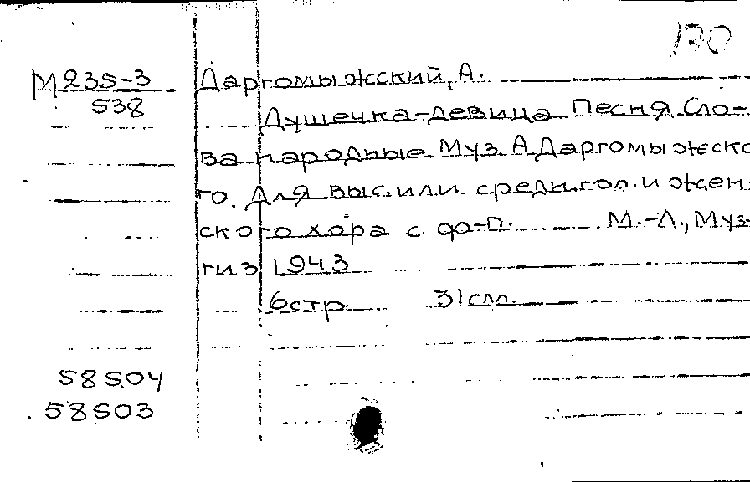 170
М235-3 Даргомыжский, А.
538 Душечка-девица Песня Сло-
ва народные Муз А Даргомыжско
го. Для выс. или средн. гол. и жен
ского хора с ф-п. М.-Л., Муз-
гиз 1943
6стр
58504
58503